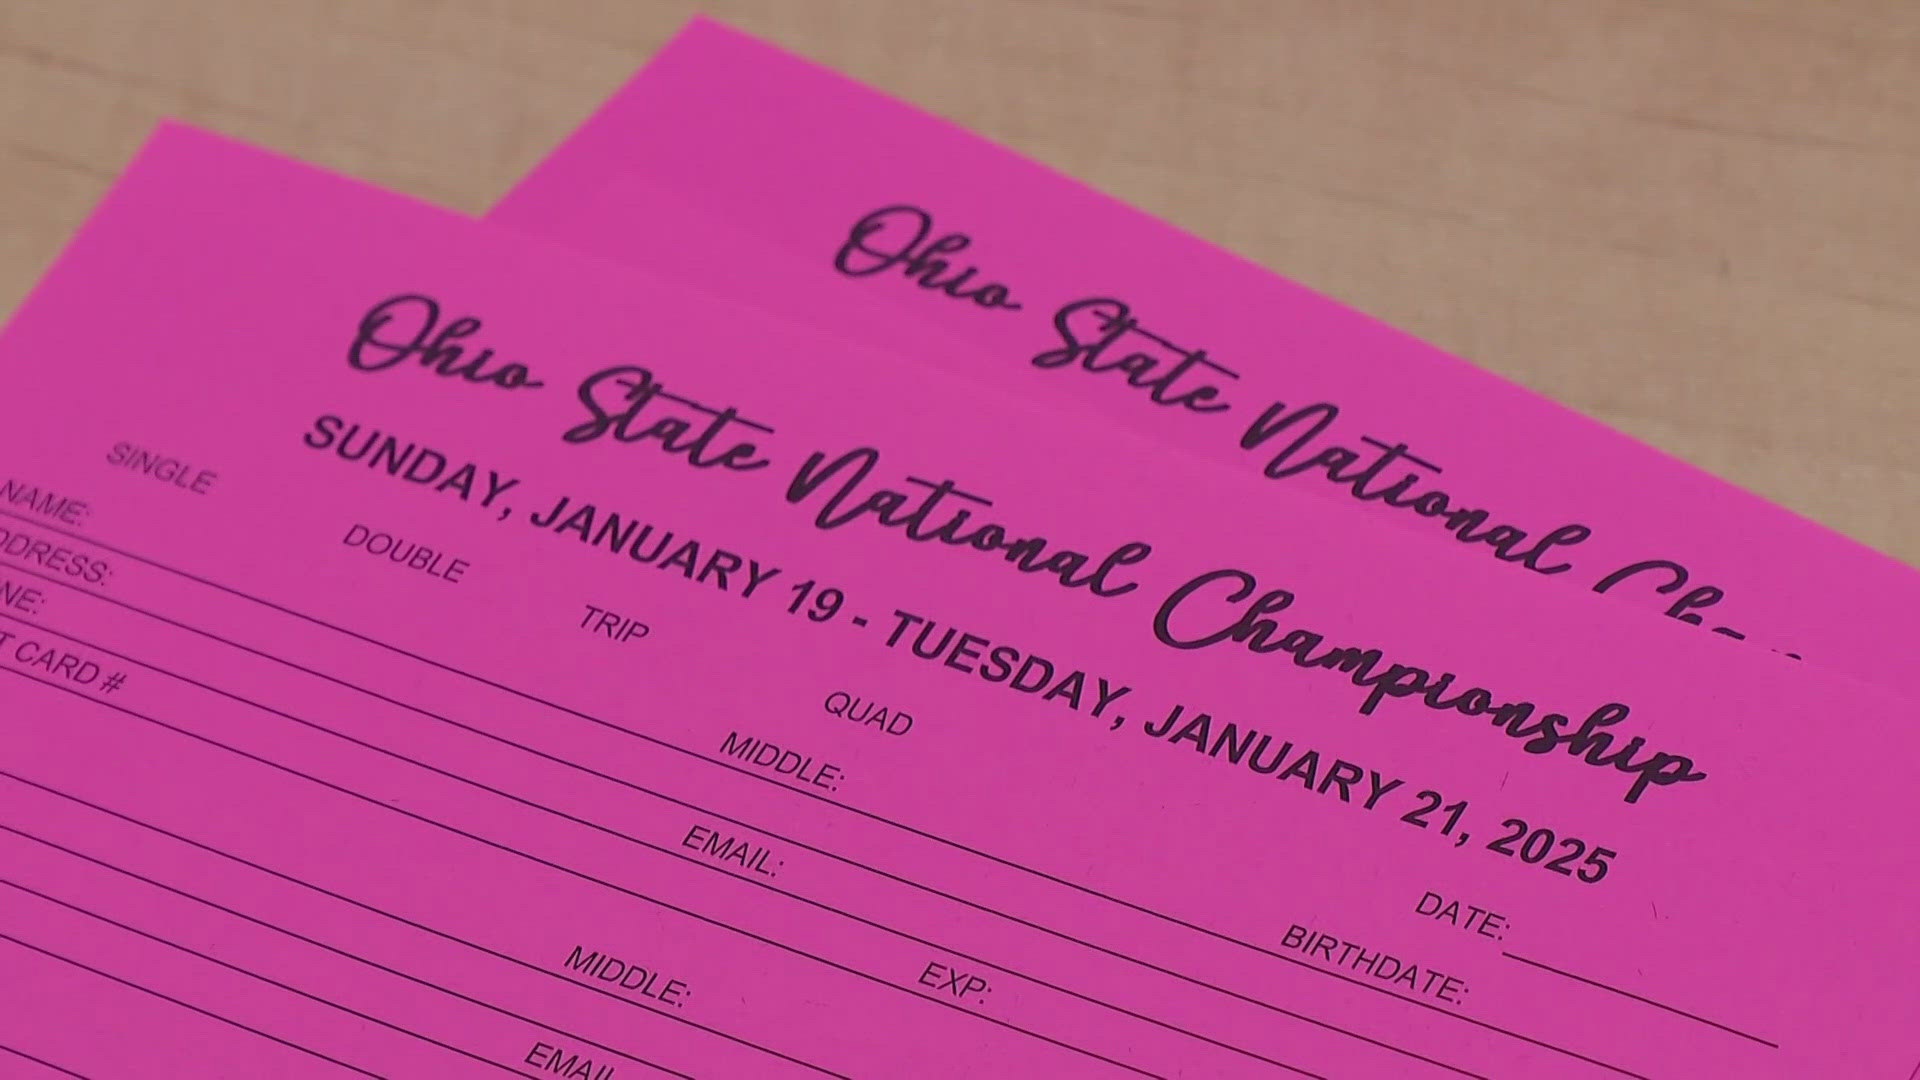 Ohio State National
Ohio State National Championship
SUNDAY, JANUARY 19 - TUESDAY, JANUARY 21, 2025
SINGLE DOUBLE TRIP QUAD DATE:
NAME: MIDDLE: BIRTHDATE:
DDRESS:
NE: EMAIL:
T CARD # EXP:
MIDDLE:
EMAIL